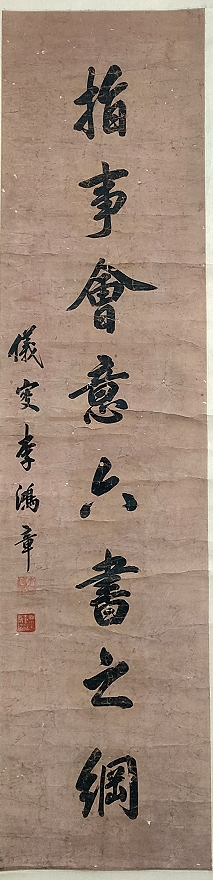 指事會意六書之綱
儀叟李鴻章